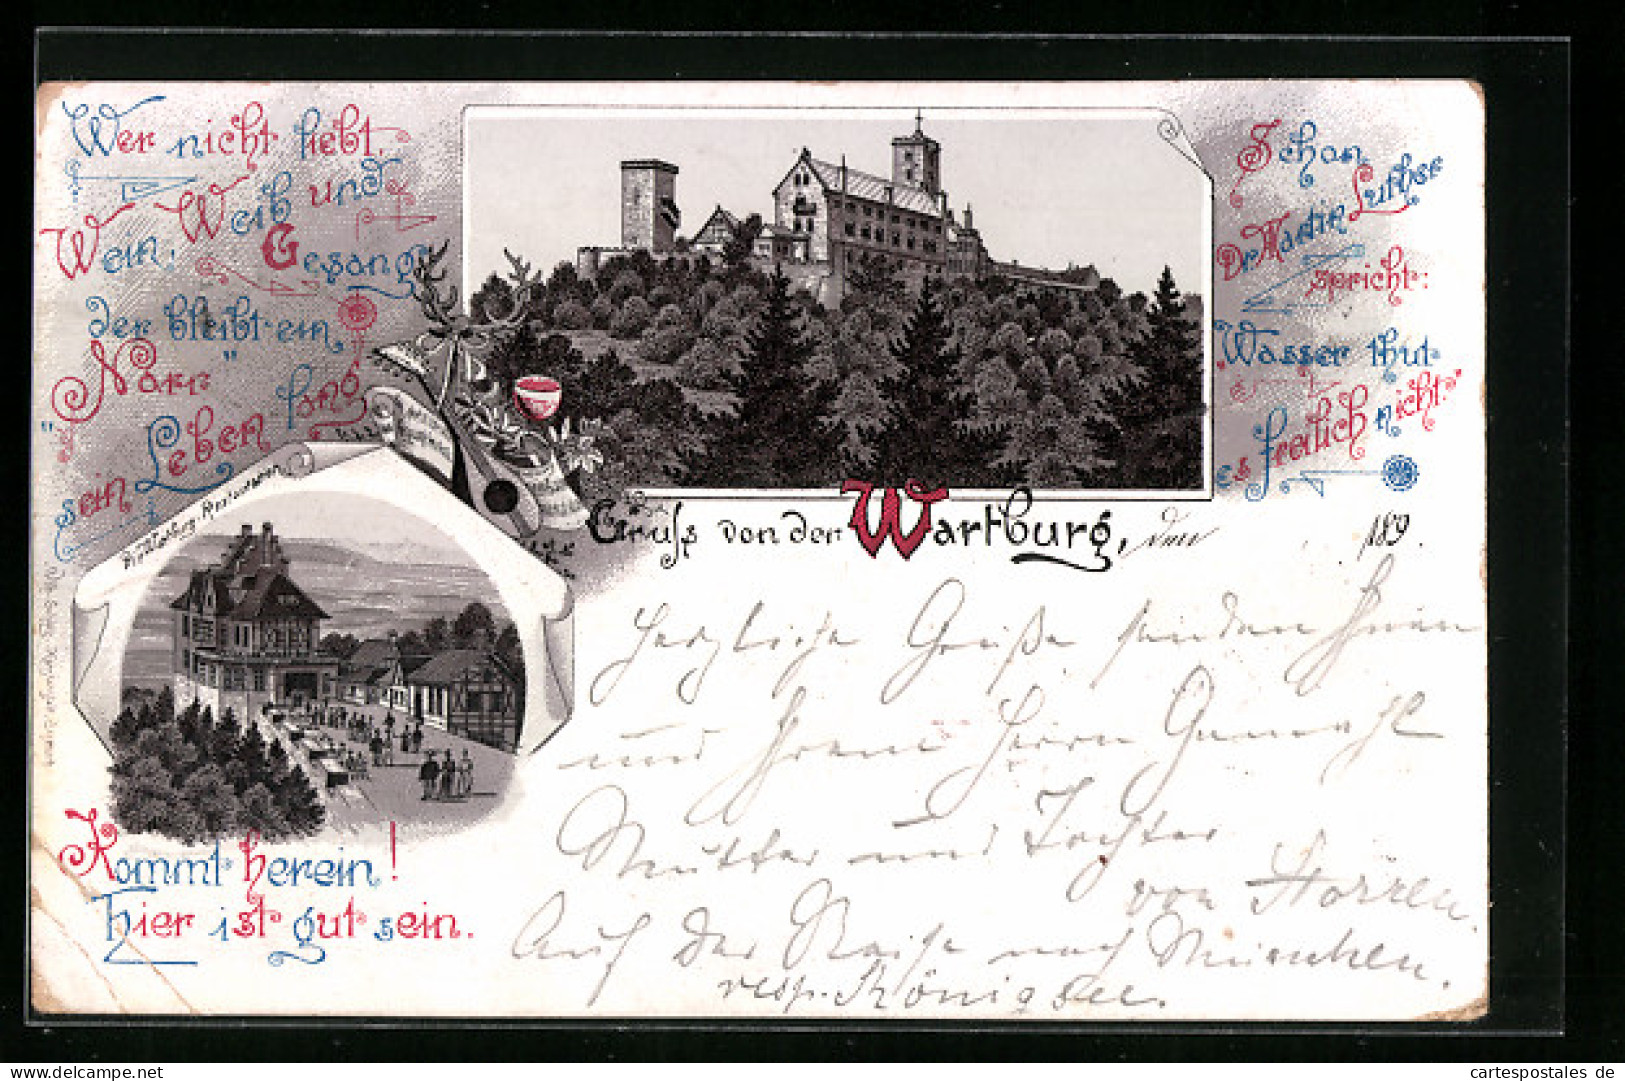 Wer nicht liebt
Wein, Weib und
Gesang
der bleibt ein
"Narr"
sein Leben lang
Schon
Dr. Martin Luther
spricht:
"Wasser thut
es freilich nicht."
Gruss von der Wartburg, den 189 .
Kommt herein!
Hier ist gut sein.
Herzliche Grüße senden Ihnen
und Ihrem Herrn Gemahl
Mutter und Tochter
von
Auf der Reise nach München,
resp. Königsee.
cartespostales de